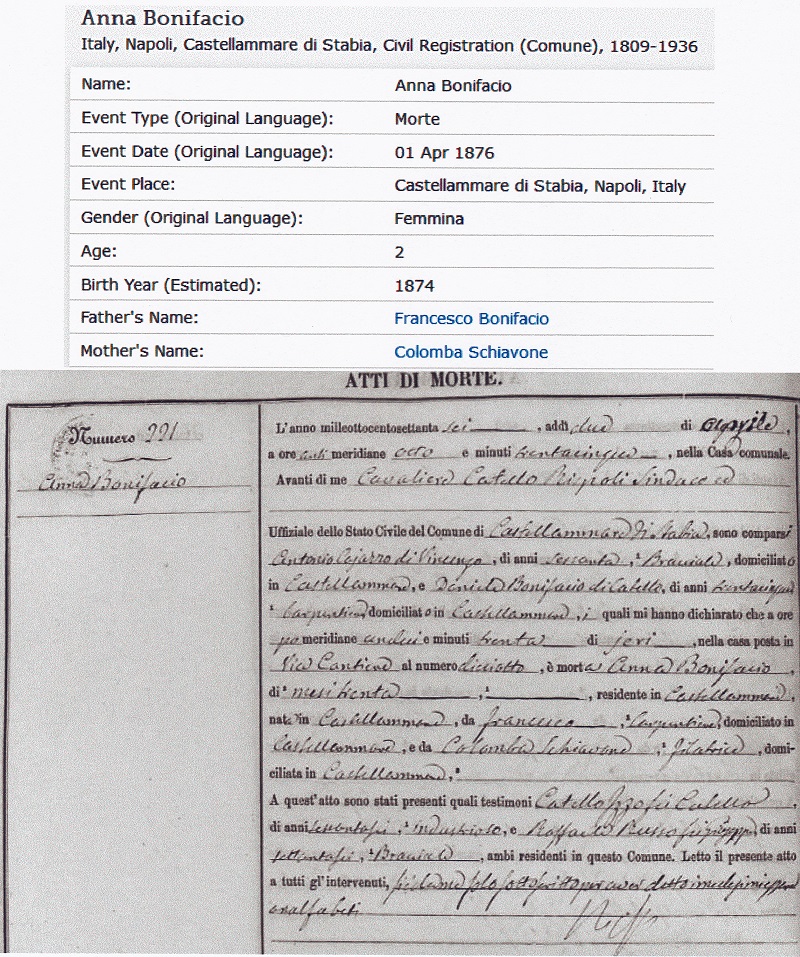 Anna Bonifacio
Italy, Napoli, Castellammare di Stabia, Civil Registration (Comune), 1809-1936
Name: Anna Bonifacio
Event Type (Original Language): Morte
Event Date (Original Language): 01 Apr 1876
Event Place: Castellammare di Stabia, Napoli, Italy
Gender (Original Language): Femmina
Age: 2
Birth Year (Estimated): 1874
Father's Name: Francesco Bonifacio
Mother's Name: Colomba Schiavone
ATTI DI MORTE.
Numero 221
Anna Bonifacio
L'anno milleottocentosettanta sei, addì due di Aprile,
a ore anti meridiane otto e minuti trentacinque, nella Casa comunale.
Avanti di me Cavaliere Catello Sindaco ed
Uffiziale dello Stato Civile del Comune di Castellammare di Stabia, sono comparsi
Antonio di Vincenzo, di anni sessanta, Bracciale, domiciliato
in Castellammare, e Daniele Bonifacio di Catello, di anni trentacinque
Carpentiere domiciliato in Castellammare, i quali mi hanno dichiarato che a ore
po meridiane undici e minuti trenta di jeri, nella casa posta in
Vico Cantiere al numero diciotto, è morta Anna Bonifacio,
di mesi trenta, residente in Castellammare,
nata in Castellammare, da Francesco, Carpentiere, domiciliato in
Castellammare, e da Colomba Schiavone, Filatrice, domi-
ciliata in Castellammare,
A quest'atto sono stati presenti quali testimoni Catello fu Catello
di anni sessantasei, industrioso, e Raffaele Russo fu Giuseppe, di anni
settantasei, Bracciale, ambi residenti in questo Comune. Letto il presente atto
a tutti gl'intervenuti, si è da me solo sottoscritto per aver detto
analfabeti